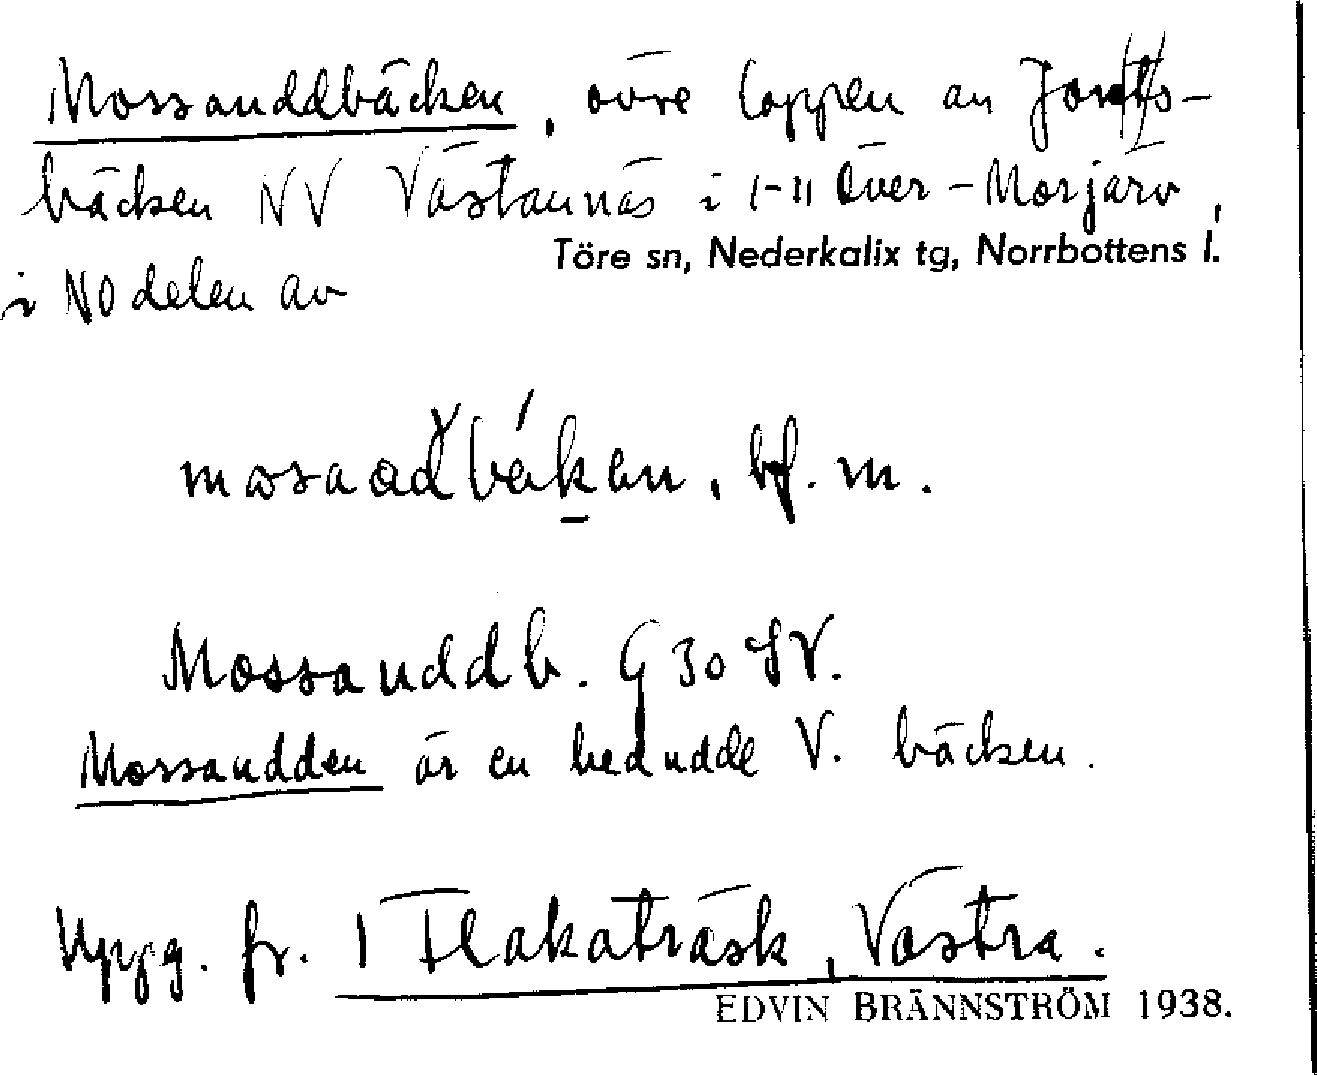 Mossauddbäcken, övre loppen av
bäcken NV Västannäs i 1-11 Över-Morjärv,
Töre sn, Nederkalix tg, Norrbottens l.
i NO delen av
bf. m.
Mossauddb. G 30 SV.
Mossaudden är en hedudde V. bäcken.
Uppg. fr. 1 Flakaträsk, Västra.
EDVIN BRÄNNSTRÖM 1938.